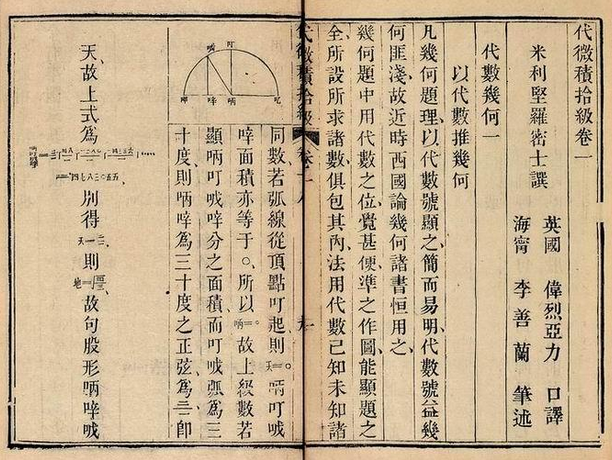 代微積拾級卷一
米利堅羅密士譔
英國 偉烈亞力 口譯
海甯 李善蘭 筆述
代數幾何一
以代數推幾何
凡幾何題理以代數號顯之簡而易明代數號益幾
何匪淺故近時西國論幾何諸書恒用之
幾何題中用代數之位覺甚便準之作圖能顯題之
全所設所求諸數俱包其內法用代數已知未知諸
代微積拾級
同數若弧線從頂點叮起則 喃叮戓
啐面積亦等于〇所以 故上級數若
顯喃叮戓啐分之面積而叮戓弧爲三
十度則喃啐爲三十度之正弦爲 卽
天故上式爲
別得 則 故句股形喃啐戓